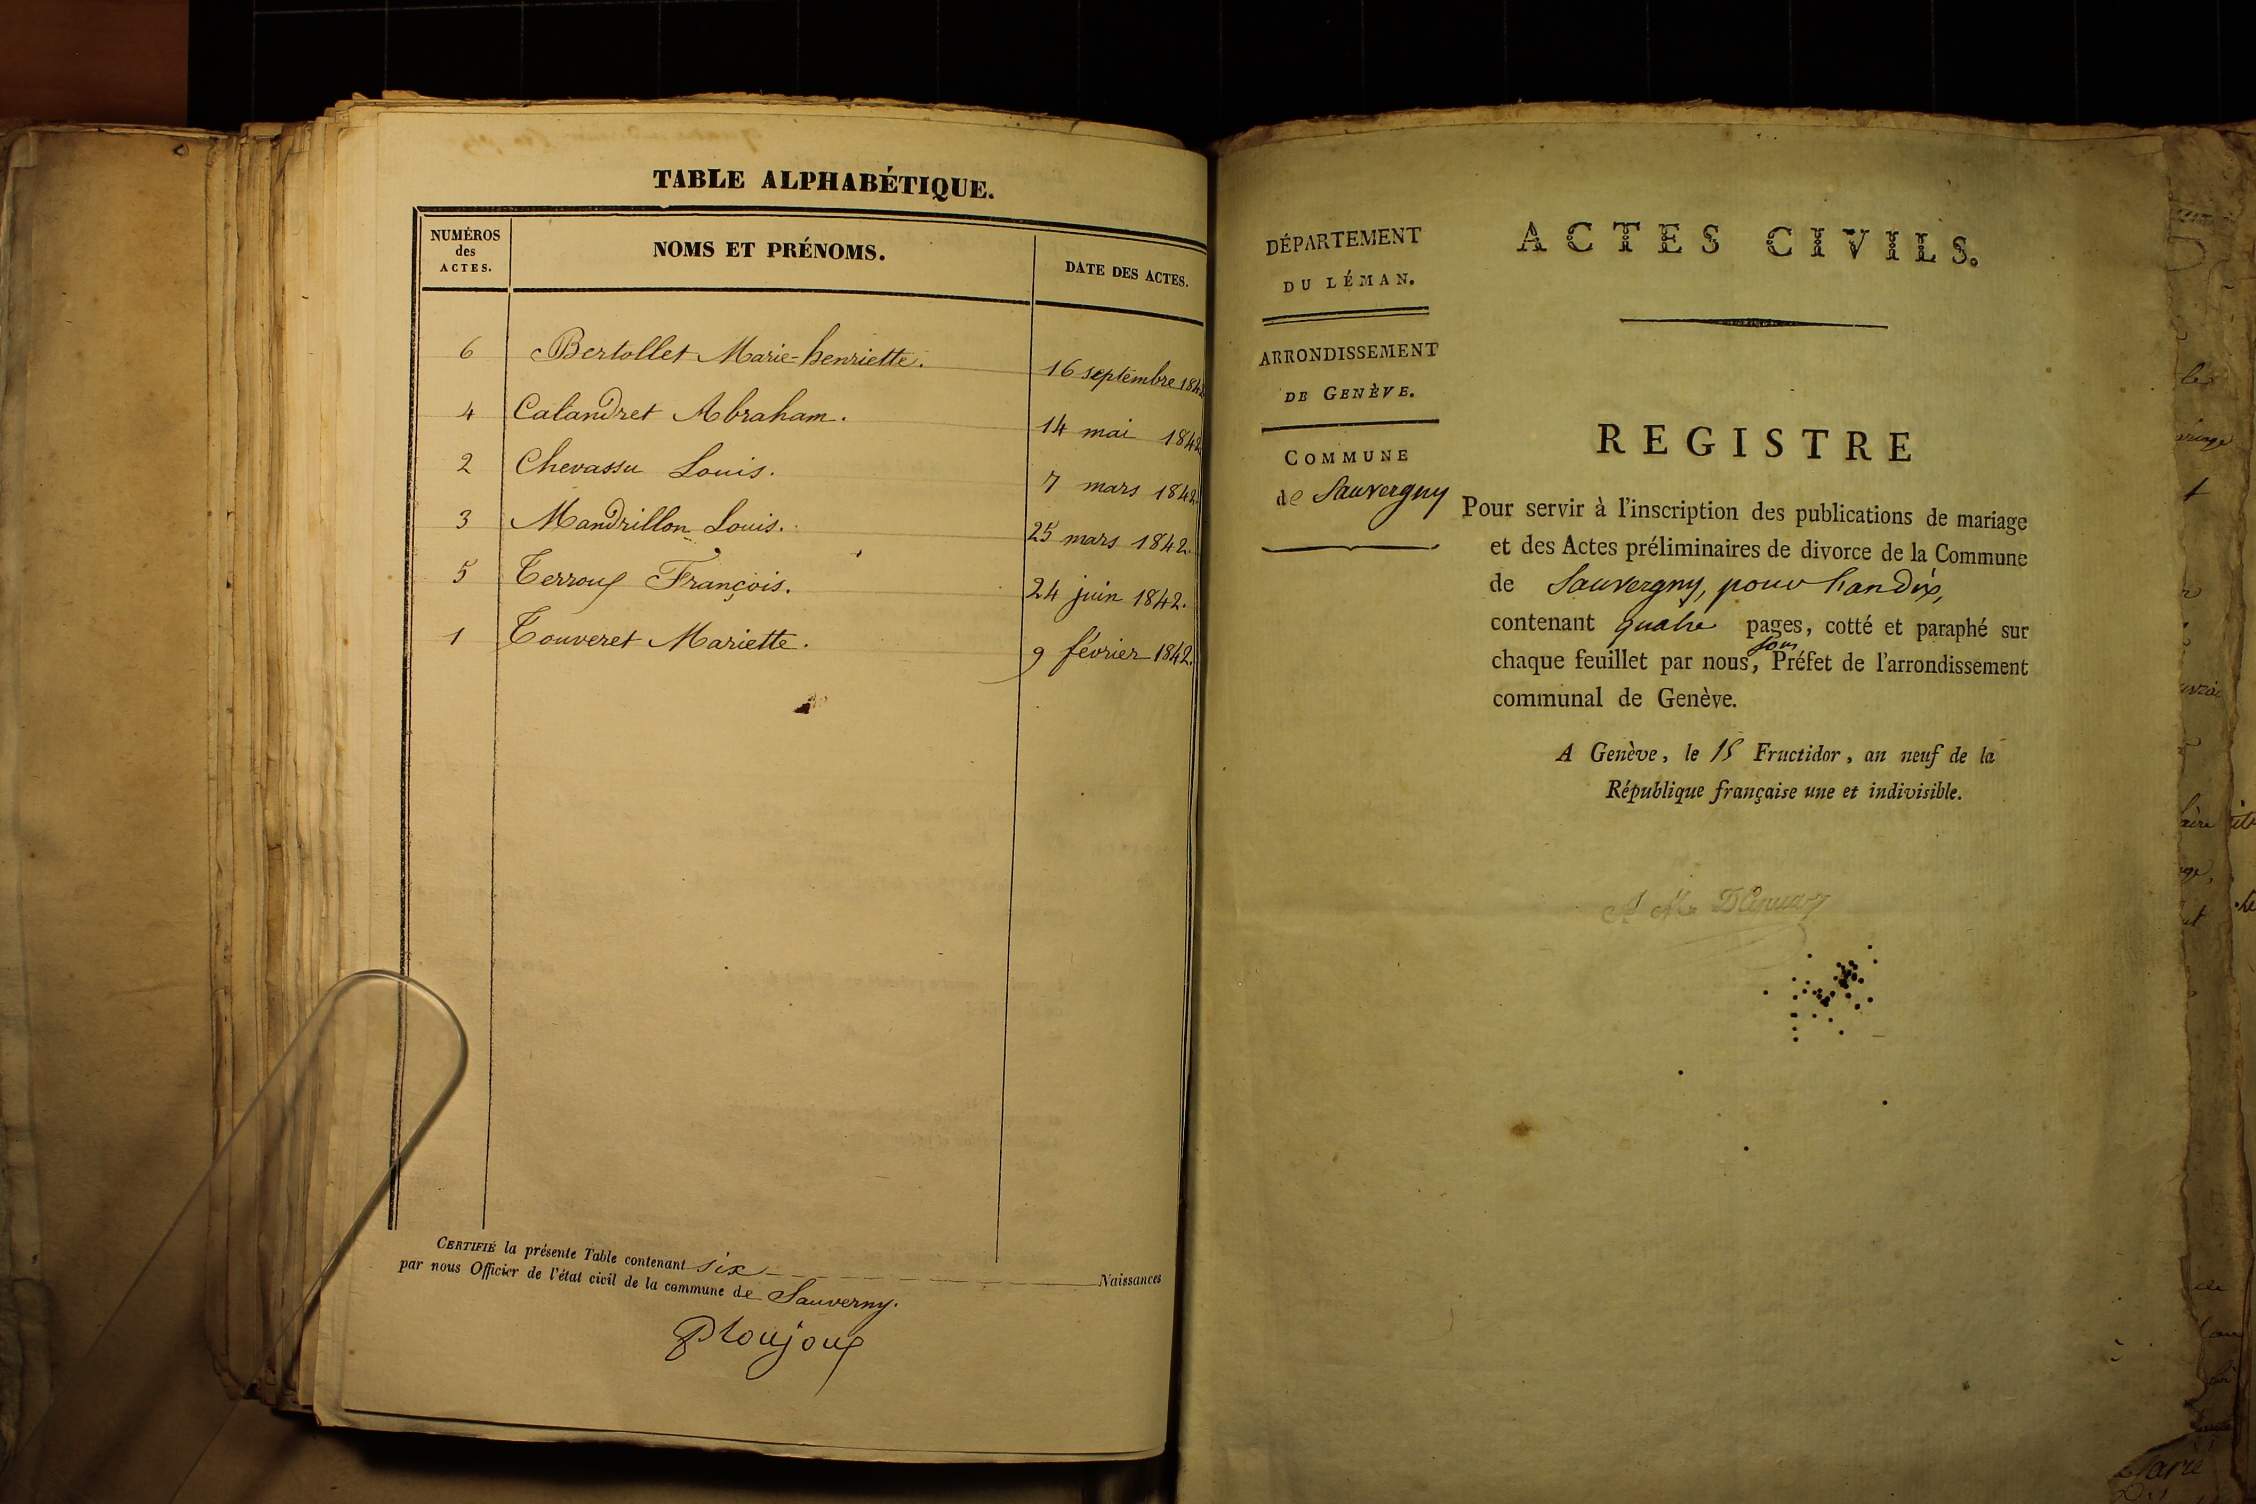 TABLE ALPHABÉTIQUE.
NUMÉROS
des
ACTES.
NOMS ET PRÉNOMS.
DATE DES ACTES.
6 Bertollet Marie-henriette. 16 septembre 1842
4 Calandret Abraham. 14 mai 1842
2 Chevassu Louis. 7 mars 1842.
3 Mandrillon Louis. 25 mars 1842.
5 Terroux François. 24 juin 1842.
1 Touveret Mariette. 9 février 1842.
CERTIFIÉ la présente Table contenant six Naissances
par nous Officier de l'état civil de la commune de Sauverny.
DÉPARTEMENT
DU LÉMAN.
ARRONDISSEMENT
DE GENÈVE.
COMMUNE
de Sauvergny
ACTES CIVILS.
REGISTRE
Pour servir à l'inscription des publications de mariage
et des Actes préliminaires de divorce de la Commune
de Sauvergny, pour l'an Dix,
contenant quatre pages, cotté et paraphé sur
chaque feuillet par nous, sous Préfet de l'arrondissement
communal de Genève.
A Genève, le 15 Fructidor, an neuf de la
République française une et indivisible.